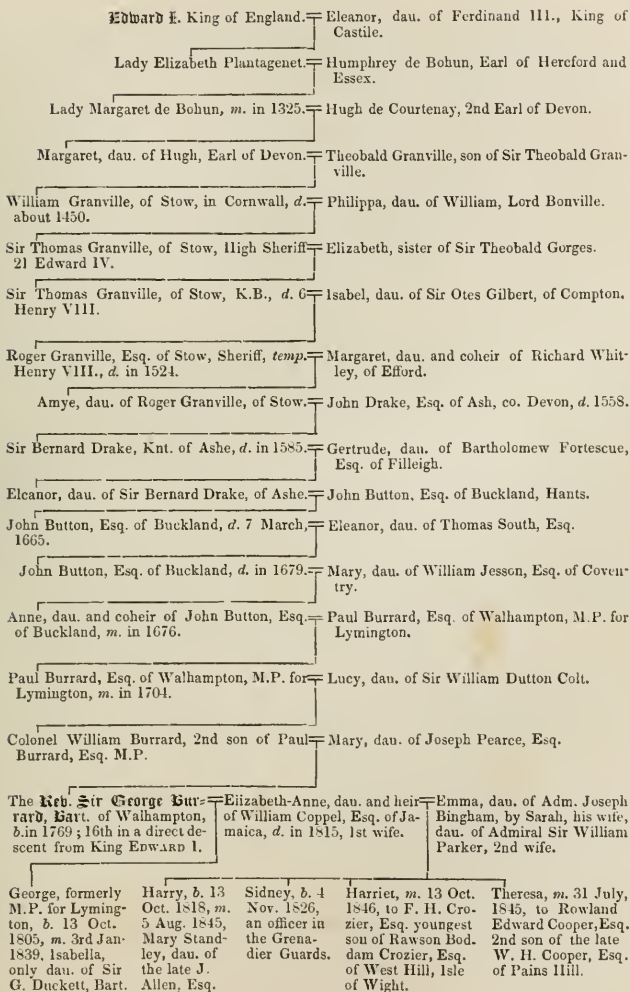 Edward I. King of England.
Eleanor, dau. of Ferdinand III., King of
Castile.
Lady Elizabeth Plantagenet.
Humphrey de Bohun, Earl of Hereford and
Essex.
Lady Margaret de Bohun, m. in 1325.
Hugh de Courtenay, 2nd Earl of Devon.
Margaret, dau. of Hugh, Earl of Devon.
Theobald Granville, son of Sir Theobald Gran-
ville.
William Granville, of Stow, in Cornwall, d.
about 1450.
Philippa, dau. of William, Lord Bonville.
Sir Thomas Granville, of Stow, High Sheriff
21 Edward IV.
Elizabeth, sister of Sir Theobald Gorges.
Sir Thomas Granville, of Stow, K.B., d. 6
Henry VIII.
Isabel, dau. of Sir Otes Gilbert, of Compton.
Roger Granville, Esq. of Stow, Sheriff, temp.
Henry VIII., d. in 1524.
Margaret, dau. and coheir of Richard Whit-
ley, of Efford.
Amye, dau. of Roger Granville, of Stow.
John Drake, Esq. of Ash, co. Devon, d. 1558.
Sir Bernard Drake, Knt. of Ashe, d. in 1585.
Gertrude, dau. of Bartholomew Fortescue,
Esq. of Filleigh.
Eleanor, dau. of Sir Bernard Drake, of Ashe.
John Button, Esq. of Buckland, Hants.
John Button, Esq. of Buckland, d. 7 March,
1665.
Eleanor, dau. of Thomas South, Esq.
John Button, Esq. of Buckland, d. in 1679.
Mary, dau. of William Jesson, Esq. of Coven-
try.
Anne, dau. and coheir of John Button, Esq.
of Buckland, m. in 1676.
Paul Burrard, Esq. of Walhampton, M.P. for
Lymington.
Paul Burrard, Esq. of Walhampton, M.P. for
Lymington, m. in 1704.
Lucy, dau. of Sir William Dutton Colt.
Colonel William Burrard, 2nd son of Paul
Burrard, Esq. M.P.
Mary, dau. of Joseph Pearce, Esq.
The Rev. Sir George Bur-
rard, Bart. of Walhampton,
b. in 1769; 16th in a direct de-
scent from King EDWARD I.
Elizabeth-Anne, dau. and heir
of William Coppel, Esq. of Ja-
maica, d. in 1815, 1st wife.
Emma, dau. of Adm. Joseph
Bingham, by Sarah, his wife,
dau. of Admiral Sir William
Parker, 2nd wife.
George, formerly
M.P. for Lyming-
ton, b. 13 Oct.
1805, m. 3rd Jan.
1839, Isabella,
only dau. of Sir
G. Duckett, Bart.
Harry, b. 13
Oct. 1818, m.
5 Aug. 1845,
Mary Stand-
ley, dau. of
the late J.
Allen, Esq.
Sidney, b. 4
Nov. 1826,
an officer in
the Grena-
dier Guards.
Harriet, m. 13 Oct.
1846, to F. H. Cro-
zier, Esq. youngest
son of Rawson Bod.
dam Crozier, Esq.
of West Hill, Isle
of Wight.
Theresa, m. 31 July,
1845, to Rowland
Edward Cooper, Esq.
2nd son of the late
W. H. Cooper, Esq.
of Pains Hill.